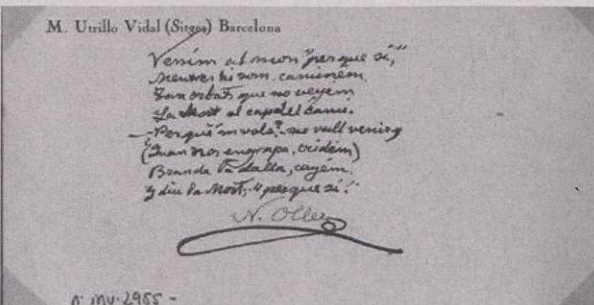 M. Utrillo Vidal (Sitges) Barcelona
Venim al mon "perque sí,"
Mentres hi som, caminém
Tan orbats que no veyem
La Mort al cap del camí.
—Perqué 'm vols? no vull venir,
(Quan nos engrapa, cridém)
Branda la dalla, cayém.
Y diu la Mort: "perque sí."
N. Oller
nº inv. 2955 -